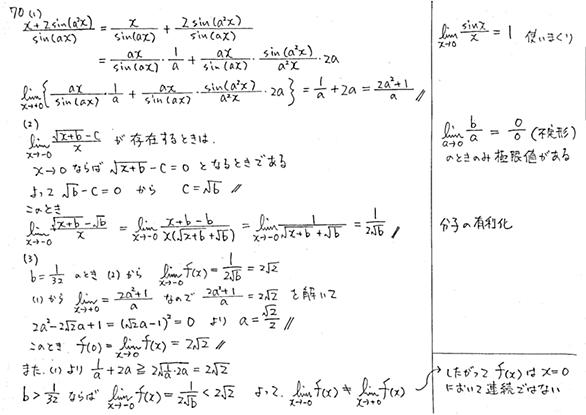 70 (1)
(x+2sin(a²x))/sin(ax) = x/sin(ax) + 2sin(a²x)/sin(ax)
= ax/sin(ax)・1/a + ax/sin(ax)・sin(a²x)/a²x・2a
lim_{x→+0}{ax/sin(ax)・1/a + ax/sin(ax)・sin(a²x)/a²x・2a} = 1/a + 2a = (2a²+1)/a //
(2)
lim_{x→-0} (√(x+b) - c)/x が存在するときは、
x→0 ならば √(x+b) - c = 0 となるときである
よって √b - c = 0 から c = √b //
このとき
lim_{x→-0} (√(x+b) - √b)/x = lim_{x→-0} (x+b-b)/(x(√(x+b)+√b)) = lim_{x→-0} 1/(√(x+b)+√b) = 1/(2√b) //
(3)
b = 1/32 のとき (2) から lim_{x→-0} f(x) = 1/(2√b) = 2√2
(1) から lim_{x→+0} = (2a²+1)/a なので (2a²+1)/a = 2√2 を解いて
2a² - 2√2a + 1 = (√2a - 1)² = 0 より a = √2/2 //
このとき f(0) = lim_{x→0} f(x) = 2√2 //
また、(1) より 1/a + 2a ≧ 2√(1/a・2a) = 2√2
b > 1/32 ならば lim_{x→-0} f(x) = 1/(2√b) < 2√2 よって、lim_{x→-0} f(x) ≠ lim_{x→+0} f(x)
lim_{x→0} sinx/x = 1 使いまくり
lim_{a→0} b/a = 0/0 (不定形)
のときのみ極限値がある
分子の有利化
したがって f(x) は x=0
において連続ではない